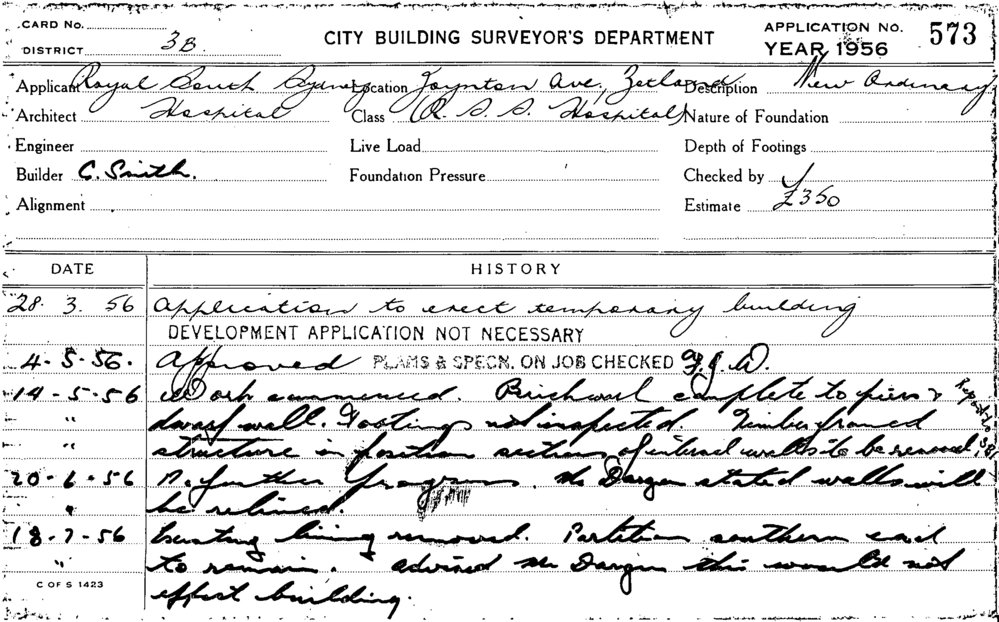 CARD No.
DISTRICT 3B
CITY BUILDING SURVEYOR'S DEPARTMENT
APPLICATION No. 573
YEAR 1956
Applicant Royal South Sydney Location Joynton Ave, Zetland Description New Ordinary
Architect Hospital Class R. S. S. Hospital Nature of Foundation
Engineer Live Load Depth of Footings
Builder C. Smith. Foundation Pressure Checked by
Alignment Estimate £350
DATE HISTORY
28. 3. 56 Application to erect temporary building
DEVELOPMENT APPLICATION NOT NECESSARY
4-5-56. Approved PLAMS & SPECN. ON JOB CHECKED
14-5-56 Work commenced. Brickwork complete to piers & Report to
" dwarf wall. Footings not inspected. Timber framed
" structure in position sections of internal walls to be removed.
20-6-56 No further progress. Mr Dargan stated walls will
" be relined.
18-7-56 Existing lining removed. Partition southern end
" to remain. Advised Mr Dargan this would not
C OF S 1423
effect building.